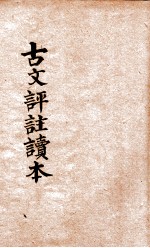 古文評註讀本